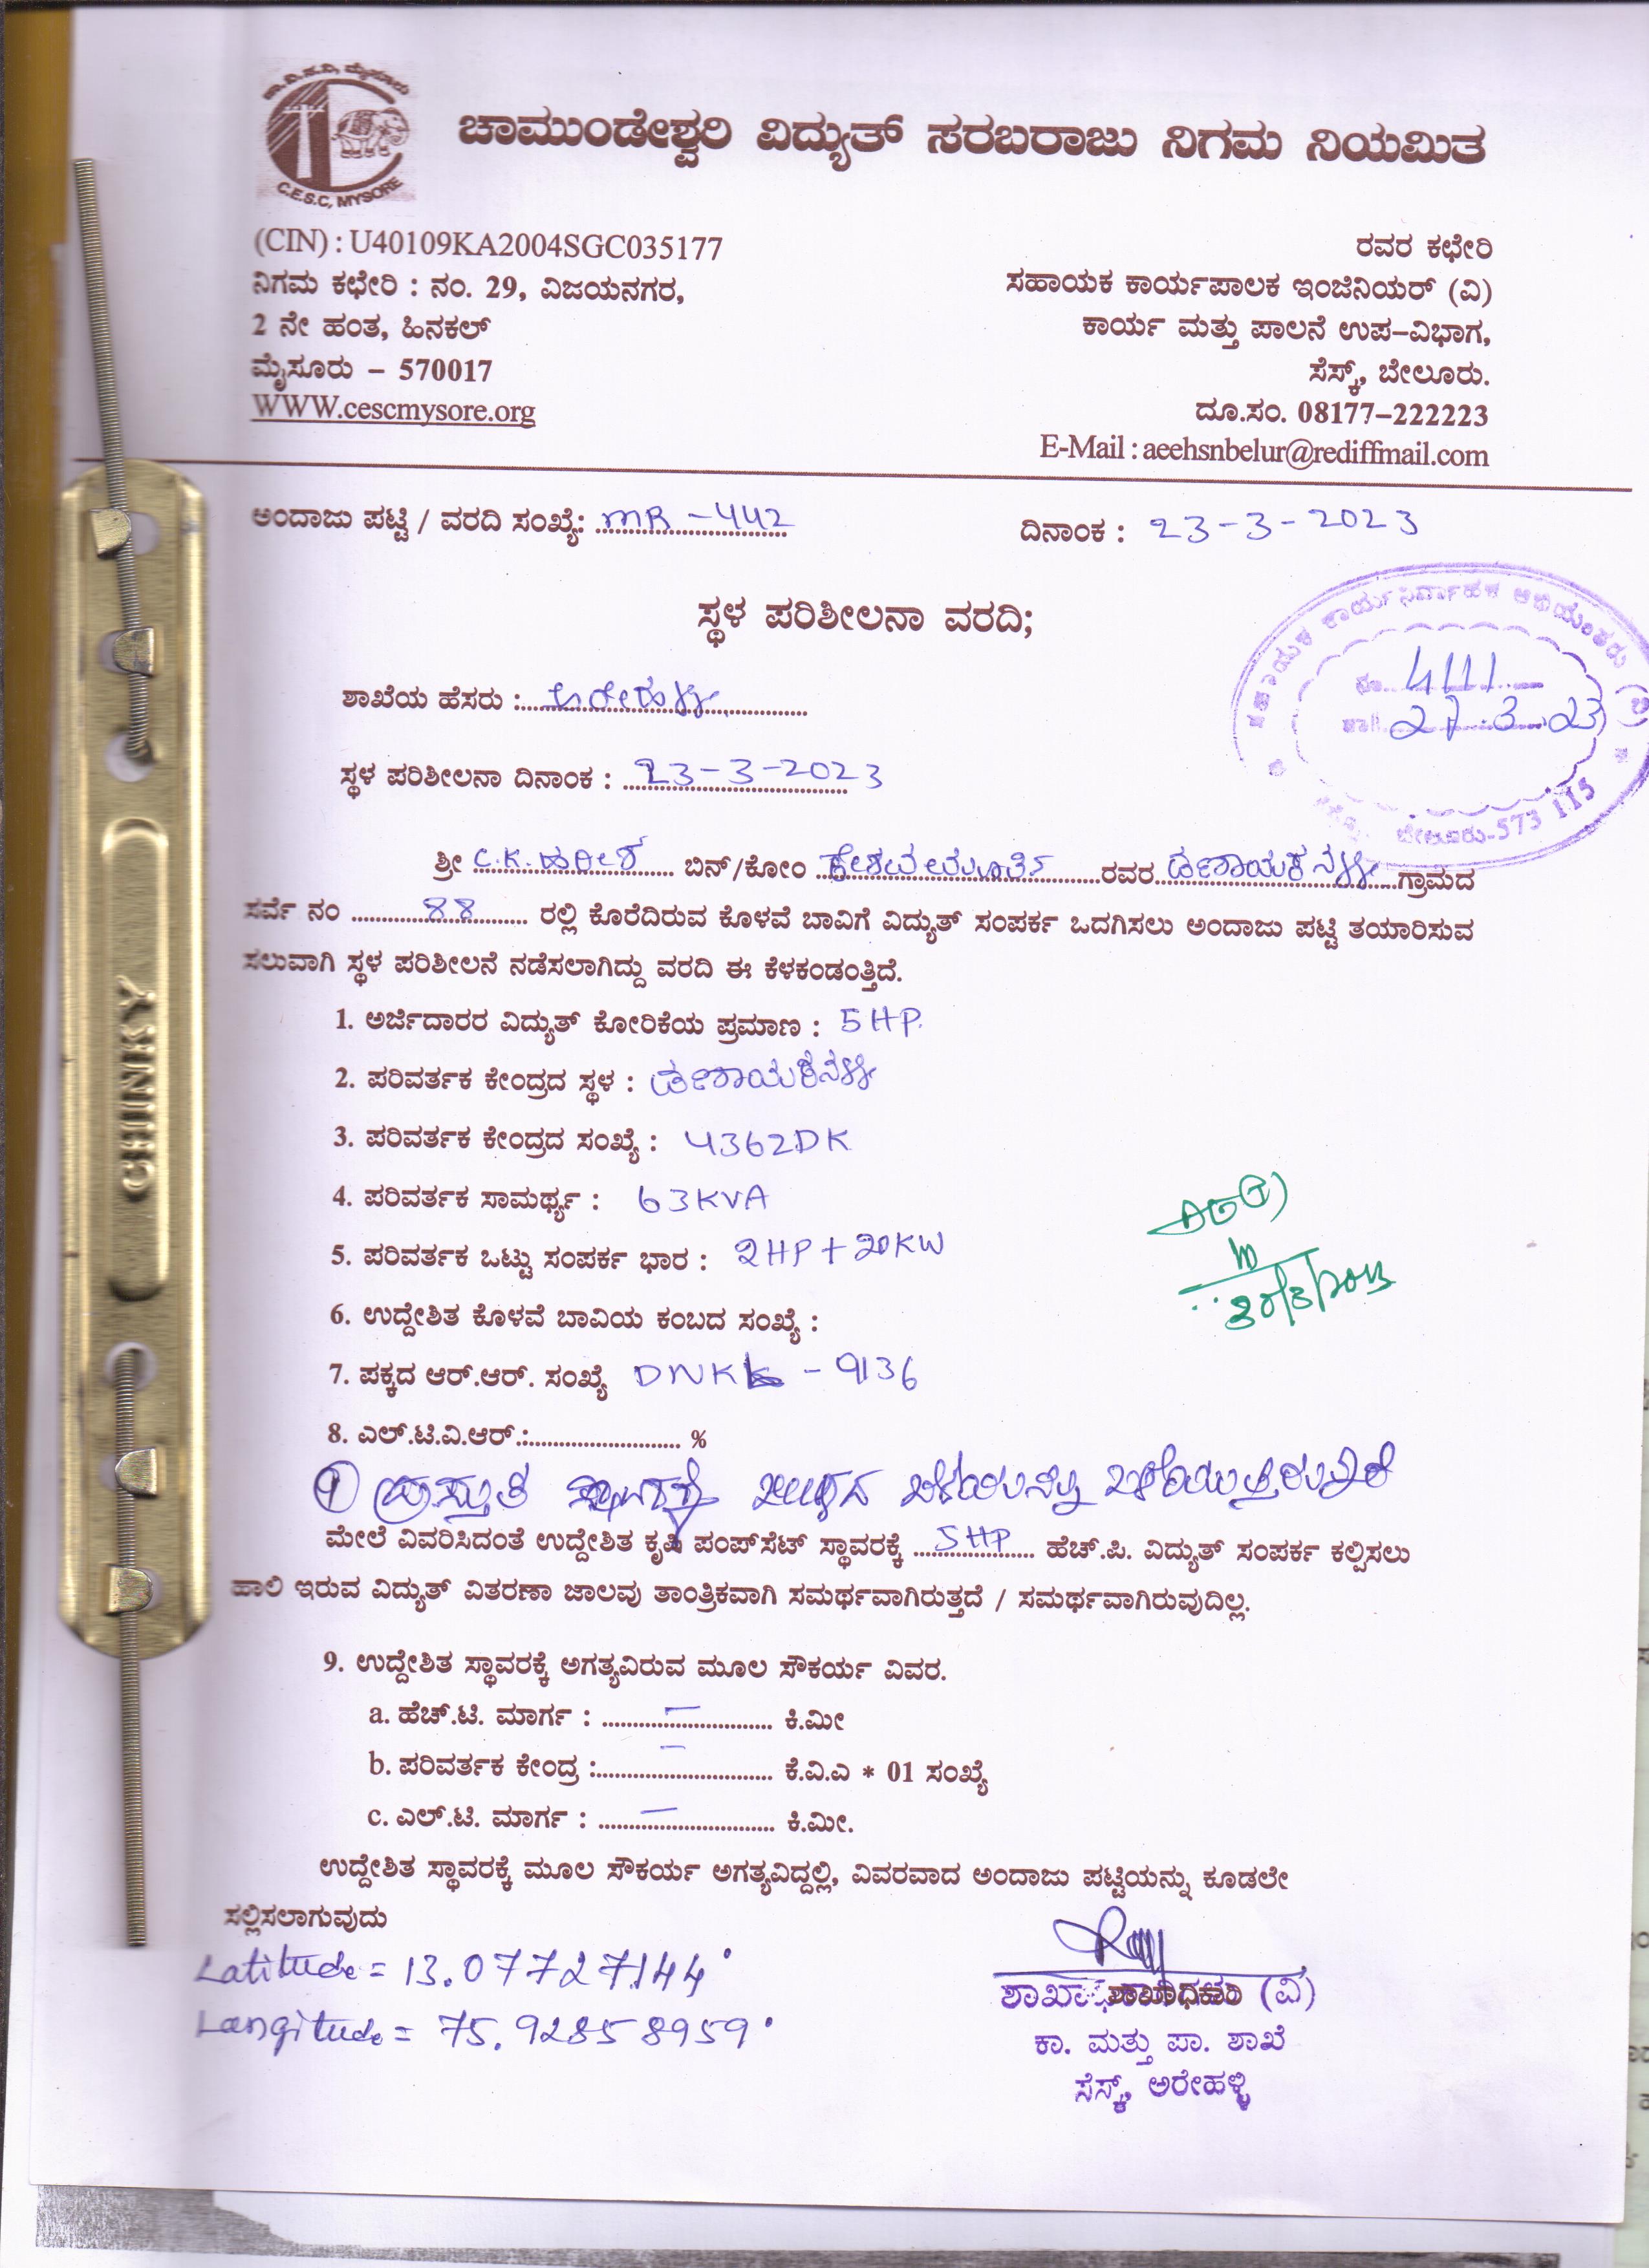 ಕಾ.ವಿ.ಸ.ನಿ, ಮೈಸೂರು
C.E.S.C, MYSORE
ಚಾಮುಂಡೇಶ್ವರಿ ವಿದ್ಯುತ್ ಸರಬರಾಜು ನಿಗಮ ನಿಯಮಿತ
(CIN) : U40109KA2004SGC035177
ನಿಗಮ ಕಛೇರಿ : ನಂ. 29, ವಿಜಯನಗರ,
2 ನೇ ಹಂತ, ಹಿನಕಲ್
ಮೈಸೂರು – 570017
WWW.cescmysore.org
ರವರ ಕಛೇರಿ
ಸಹಾಯಕ ಕಾರ್ಯಪಾಲಕ ಇಂಜಿನಿಯರ್ (ವಿ)
ಕಾರ್ಯ ಮತ್ತು ಪಾಲನೆ ಉಪ–ವಿಭಾಗ,
ಸೆಸ್ಕ್, ಬೇಲೂರು.
ದೂ.ಸಂ. 08177–222223
E-Mail : aeehsnbelur@rediffmail.com
ಅಂದಾಜು ಪಟ್ಟಿ / ವರದಿ ಸಂಖ್ಯೆ: MR - 442
ದಿನಾಂಕ : 23-3-2023
ಸ್ಥಳ ಪರಿಶೀಲನಾ ವರದಿ;
ಸಹಾಯಕ ಕಾರ್ಯನಿರ್ವಾಹಕ ಅಭಿಯಂತರು
4111
27.3.23
ಬೇಲೂರು-573 115
ಶಾಖೆಯ ಹೆಸರು : ಅರೇಹಳ್ಳಿ
ಸ್ಥಳ ಪರಿಶೀಲನಾ ದಿನಾಂಕ : 23-3-2023
ಶ್ರೀ C.K. ಹರೀಶ ಬಿನ್/ಕೋಂ ಕೇಶವಮೂರ್ತಿ ರವರ ಡಣಾಯಕನಹಳ್ಳಿ ಗ್ರಾಮದ
ಸರ್ವೆ ನಂ 88 ರಲ್ಲಿ ಕೊರೆದಿರುವ ಕೊಳವೆ ಬಾವಿಗೆ ವಿದ್ಯುತ್ ಸಂಪರ್ಕ ಒದಗಿಸಲು ಅಂದಾಜು ಪಟ್ಟಿ ತಯಾರಿಸುವ
ಸಲುವಾಗಿ ಸ್ಥಳ ಪರಿಶೀಲನೆ ನಡೆಸಲಾಗಿದ್ದು ವರದಿ ಈ ಕೆಳಕಂಡಂತ್ತಿದೆ.
1. ಅರ್ಜಿದಾರರ ವಿದ್ಯುತ್ ಕೋರಿಕೆಯ ಪ್ರಮಾಣ : 5HP.
2. ಪರಿವರ್ತಕ ಕೇಂದ್ರದ ಸ್ಥಳ :
3. ಪರಿವರ್ತಕ ಕೇಂದ್ರದ ಸಂಖ್ಯೆ : 4362DK
4. ಪರಿವರ್ತಕ ಸಾಮರ್ಥ್ಯ : 63KVA
5. ಪರಿವರ್ತಕ ಒಟ್ಟು ಸಂಪರ್ಕ ಭಾರ : 2HP + 20KW
6. ಉದ್ದೇಶಿತ ಕೊಳವೆ ಬಾವಿಯ ಕಂಬದ ಸಂಖ್ಯೆ :
7. ಪಕ್ಕದ ಆರ್.ಆರ್. ಸಂಖ್ಯೆ DNKK - 9136
8. ಎಲ್.ಟಿ.ವಿ.ಆರ್.: %
9 ಪ್ರಸ್ತುತ
ಮೇಲೆ ವಿವರಿಸಿದಂತೆ ಉದ್ದೇಶಿತ ಕೃಷಿ ಪಂಪ್‌ಸೆಟ್ ಸ್ಥಾವರಕ್ಕೆ 5HP ಹೆಚ್.ಪಿ. ವಿದ್ಯುತ್ ಸಂಪರ್ಕ ಕಲ್ಪಿಸಲು
ಹಾಲಿ ಇರುವ ವಿದ್ಯುತ್ ವಿತರಣಾ ಜಾಲವು ತಾಂತ್ರಿಕವಾಗಿ ಸಮರ್ಥವಾಗಿರುತ್ತದೆ / ಸಮರ್ಥವಾಗಿರುವುದಿಲ್ಲ.
9. ಉದ್ದೇಶಿತ ಸ್ಥಾವರಕ್ಕೆ ಅಗತ್ಯವಿರುವ ಮೂಲ ಸೌಕರ್ಯ ವಿವರ.
a. ಹೆಚ್.ಟಿ. ಮಾರ್ಗ : – ಕಿ.ಮೀ
b. ಪರಿವರ್ತಕ ಕೇಂದ್ರ : – ಕೆ.ವಿ.ಎ * 01 ಸಂಖ್ಯೆ
c. ಎಲ್.ಟಿ. ಮಾರ್ಗ : – ಕಿ.ಮೀ.
ಉದ್ದೇಶಿತ ಸ್ಥಾವರಕ್ಕೆ ಮೂಲ ಸೌಕರ್ಯ ಅಗತ್ಯವಿದ್ದಲ್ಲಿ, ವಿವರವಾದ ಅಂದಾಜು ಪಟ್ಟಿಯನ್ನು ಕೂಡಲೇ
ಸಲ್ಲಿಸಲಾಗುವುದು
Latitude = 13.077727144°
Langitude = 75.92858959°
ಶಾಖಾಧಿಕಾರಿ (ವಿ)
ಕಾ. ಮತ್ತು ಪಾ. ಶಾಖೆ
ಸೆಸ್ಕ್, ಅರೇಹಳ್ಳಿ
CHINKY